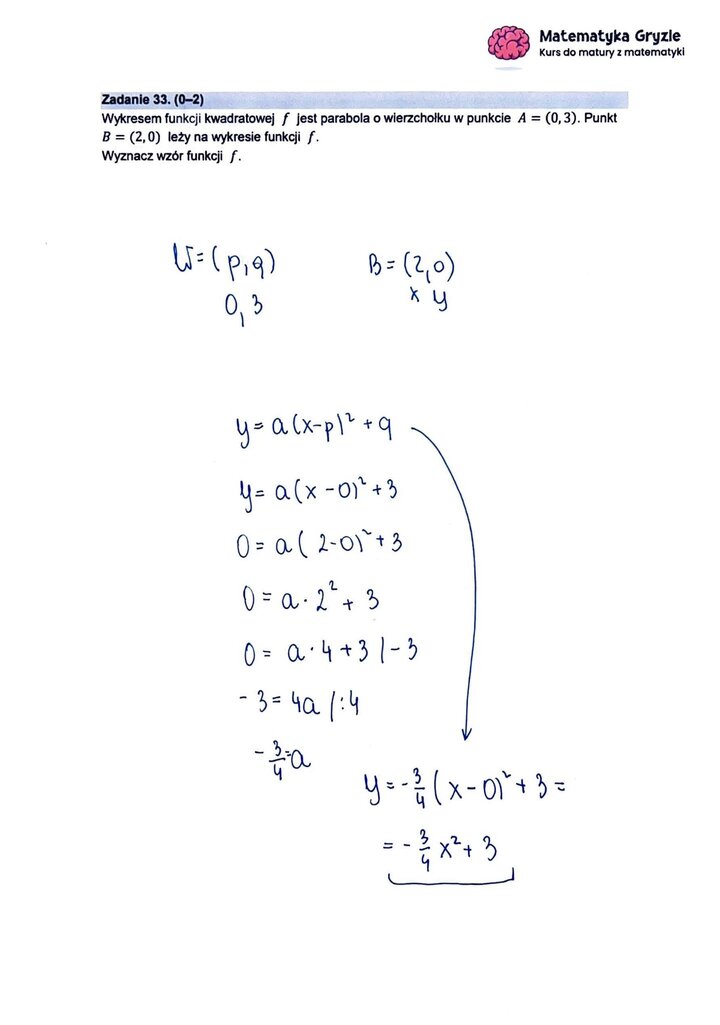 Matematyka Gryzie
Kurs do matury z matematyki
Zadanie 33. (0–2)
Wykresem funkcji kwadratowej f jest parabola o wierzchołku w punkcie A = (0, 3). Punkt
B = (2, 0) leży na wykresie funkcji f.
Wyznacz wzór funkcji f.
W=(p,q)
0,3
B=(2,0)
x y
y=a(x-p)²+q
y=a(x-0)²+3
0=a(2-0)²+3
0=a·2²+3
0=a·4+3 |-3
-3=4a |:4
-3/4=a
y=-3/4(x-0)²+3=
=-3/4x²+3